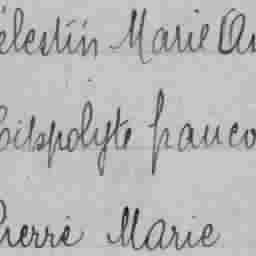 élestin Marie Au
Hippolyte Franco
Pierre Marie